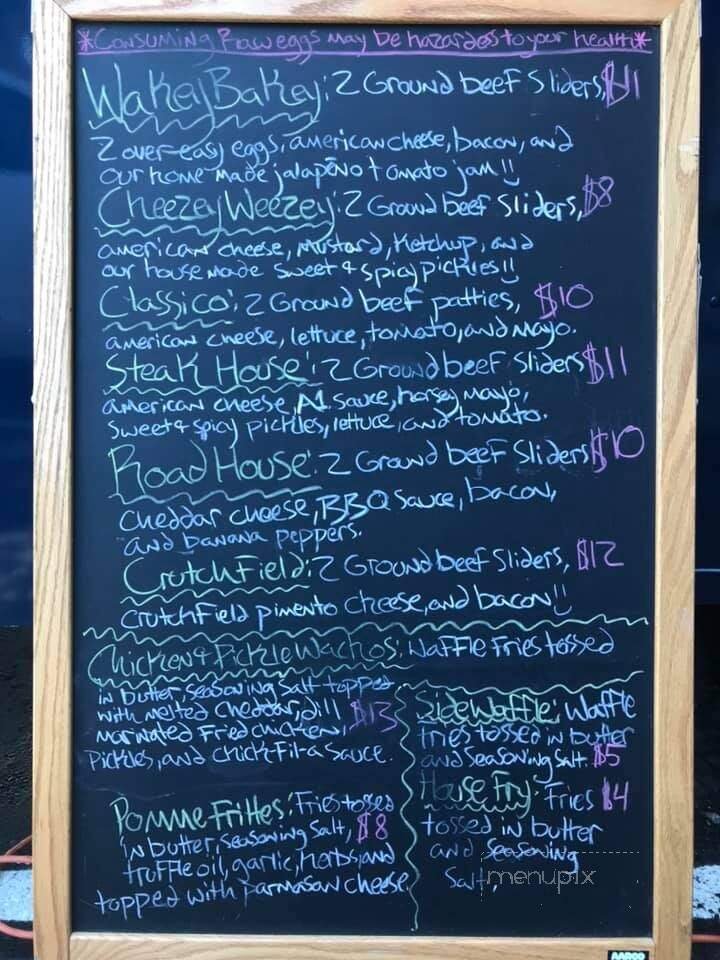 *Consuming Raw eggs may be hazardes to your health*
WakeyBakey: 2 Ground beef Sliders, $11
2 over-easy eggs, american cheese, bacon, and
our home-made jalapeño tomato jam!!
CheezeyWeezey: 2 Ground beef Sliders, $8
american cheese, Mustard, Ketchup, and
our house made sweet & spicy pickles!!
Classico: 2 Ground beef patties, $10
american cheese, lettuce, tomato, and mayo.
Steak House: 2 Ground beef Sliders $11
american cheese, A1 sauce, horsey mayo,
sweet & spicy pickles, lettuce, and tomato.
Road House: 2 Ground beef Sliders $10
cheddar cheese, BBQ sauce, bacon,
and banana peppers.
CrutchField: 2 Ground beef Sliders, $12
crutchfield pimento cheese, and bacon!!
Chicken & Pickle Wachos: Waffle Fries tossed
in butter, seasoning salt topped
with melted Cheddar, dill
marinated Fried chicken, $13
pickles, and chick-Fil-a Sauce.
Side Waffle: Waffle
fries tossed in butter
and Seasoning Salt. $5
House Fry: Fries $4
tossed in butter
and seasoning
salt,
Pomme Frittes: Fries tossed
in butter, seasoning Salt, $8
truffle oil, garlic, herbs, and
topped with parmasan cheese
menupix
AARCO